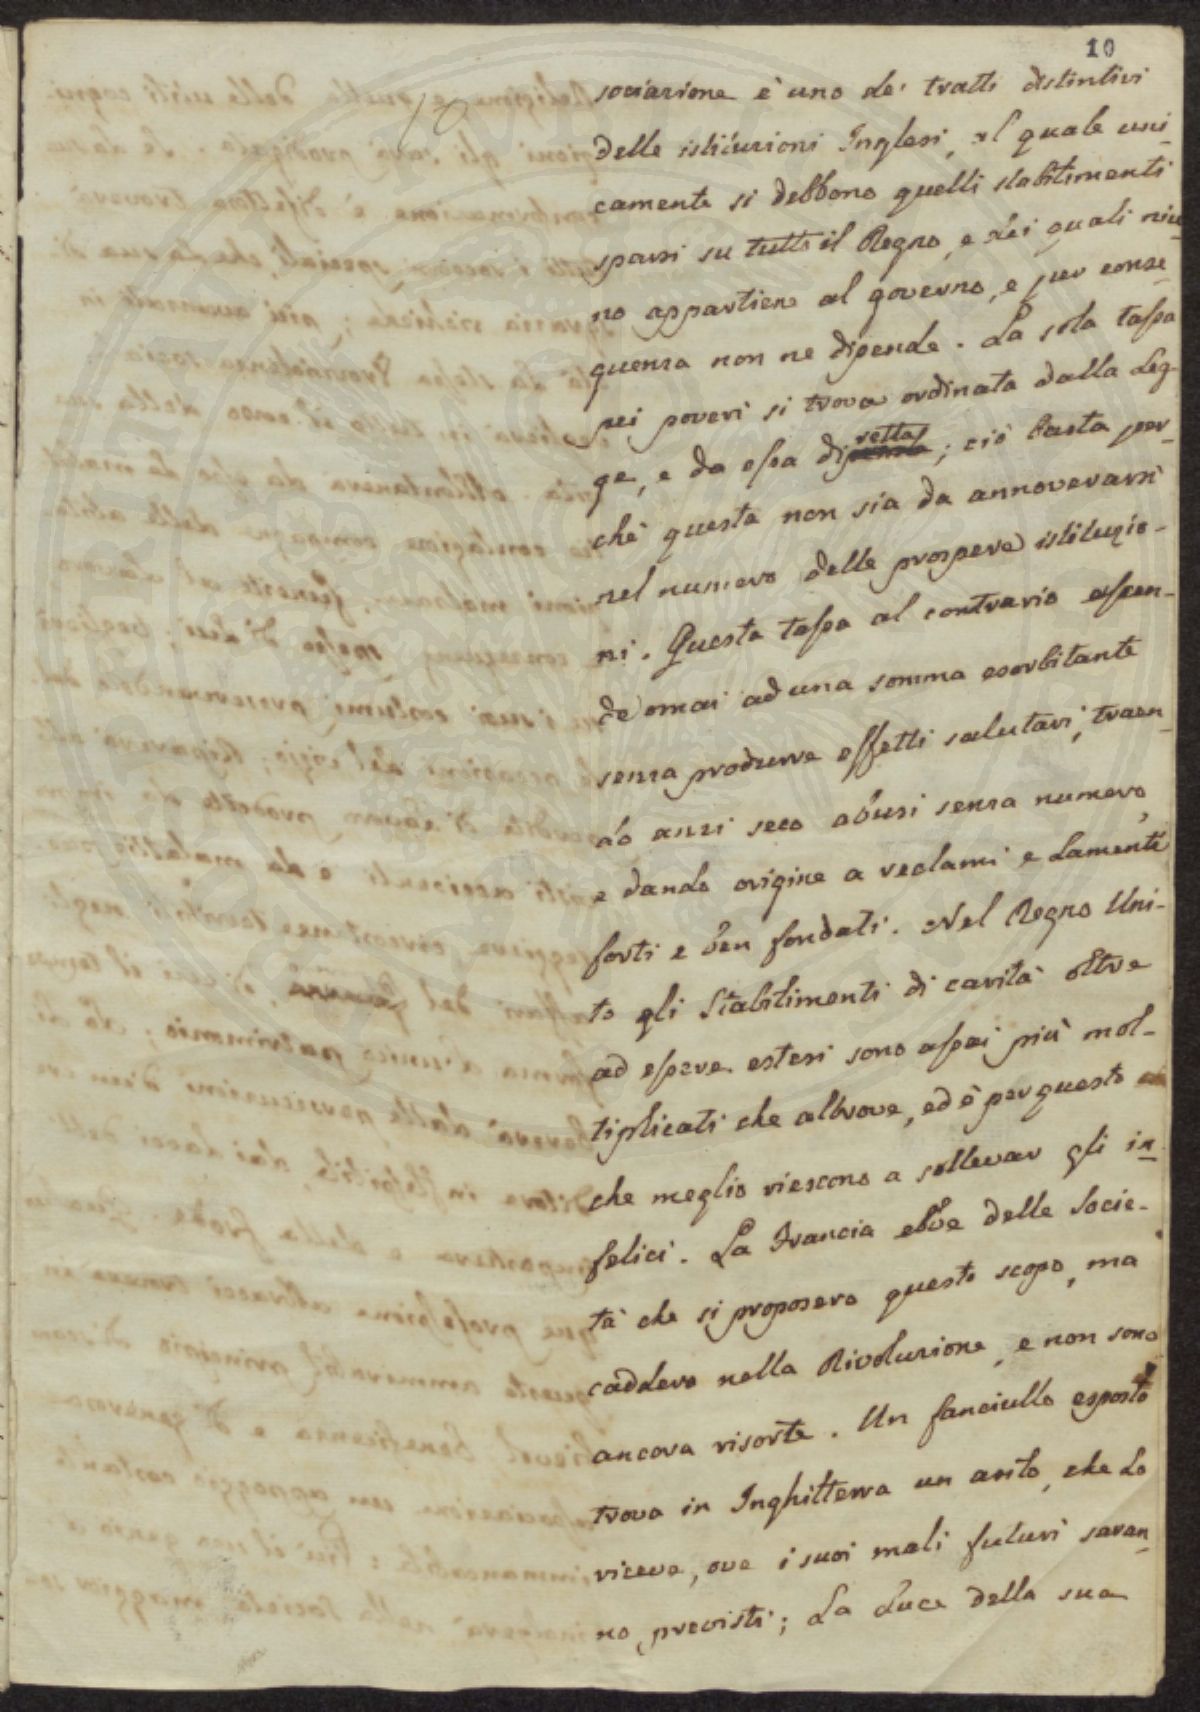 10
10
sociazione è uno de' tratti distintivi
delle istituzioni Inglesi, al quale uni-
camente si debbono quelli stabilimenti
sparsi su tutto il Regno, e dei quali niu-
no appartiene al governo, e per conse-
guenza non ne dipende. La sola tassa
pei poveri si trova ordinata dalla Leg-
retta
ge, e da essa dipensa; ciò basta per-
chè questa non sia da annoverarsi
nel numero delle prospere istituzio-
ni. Questa tassa al contrario ascen-
de omai ad una somma esorbitante
senza produrre effetti salutari, traen-
do anzi seco abusi senza numero,
e dando origine a reclami e lamenti
forti e ben fondati. Nel Regno Uni-
to gli Stabilimenti di carità oltre
ad essere estesi sono assai più mol-
tiplicati che altrove, ed è per questo
che meglio riescono a sollevar gli in-
felici. La Francia ebbe delle Socie-
tà che si proposero questo scopo, ma
caddero nella Rivoluzione, e non sono
ancora risorte. Un fanciullo esposto
trova in Inghilterra un asilo, che lo
riceve, ove i suoi mali futuri saran-
no previsti; la luce della sua